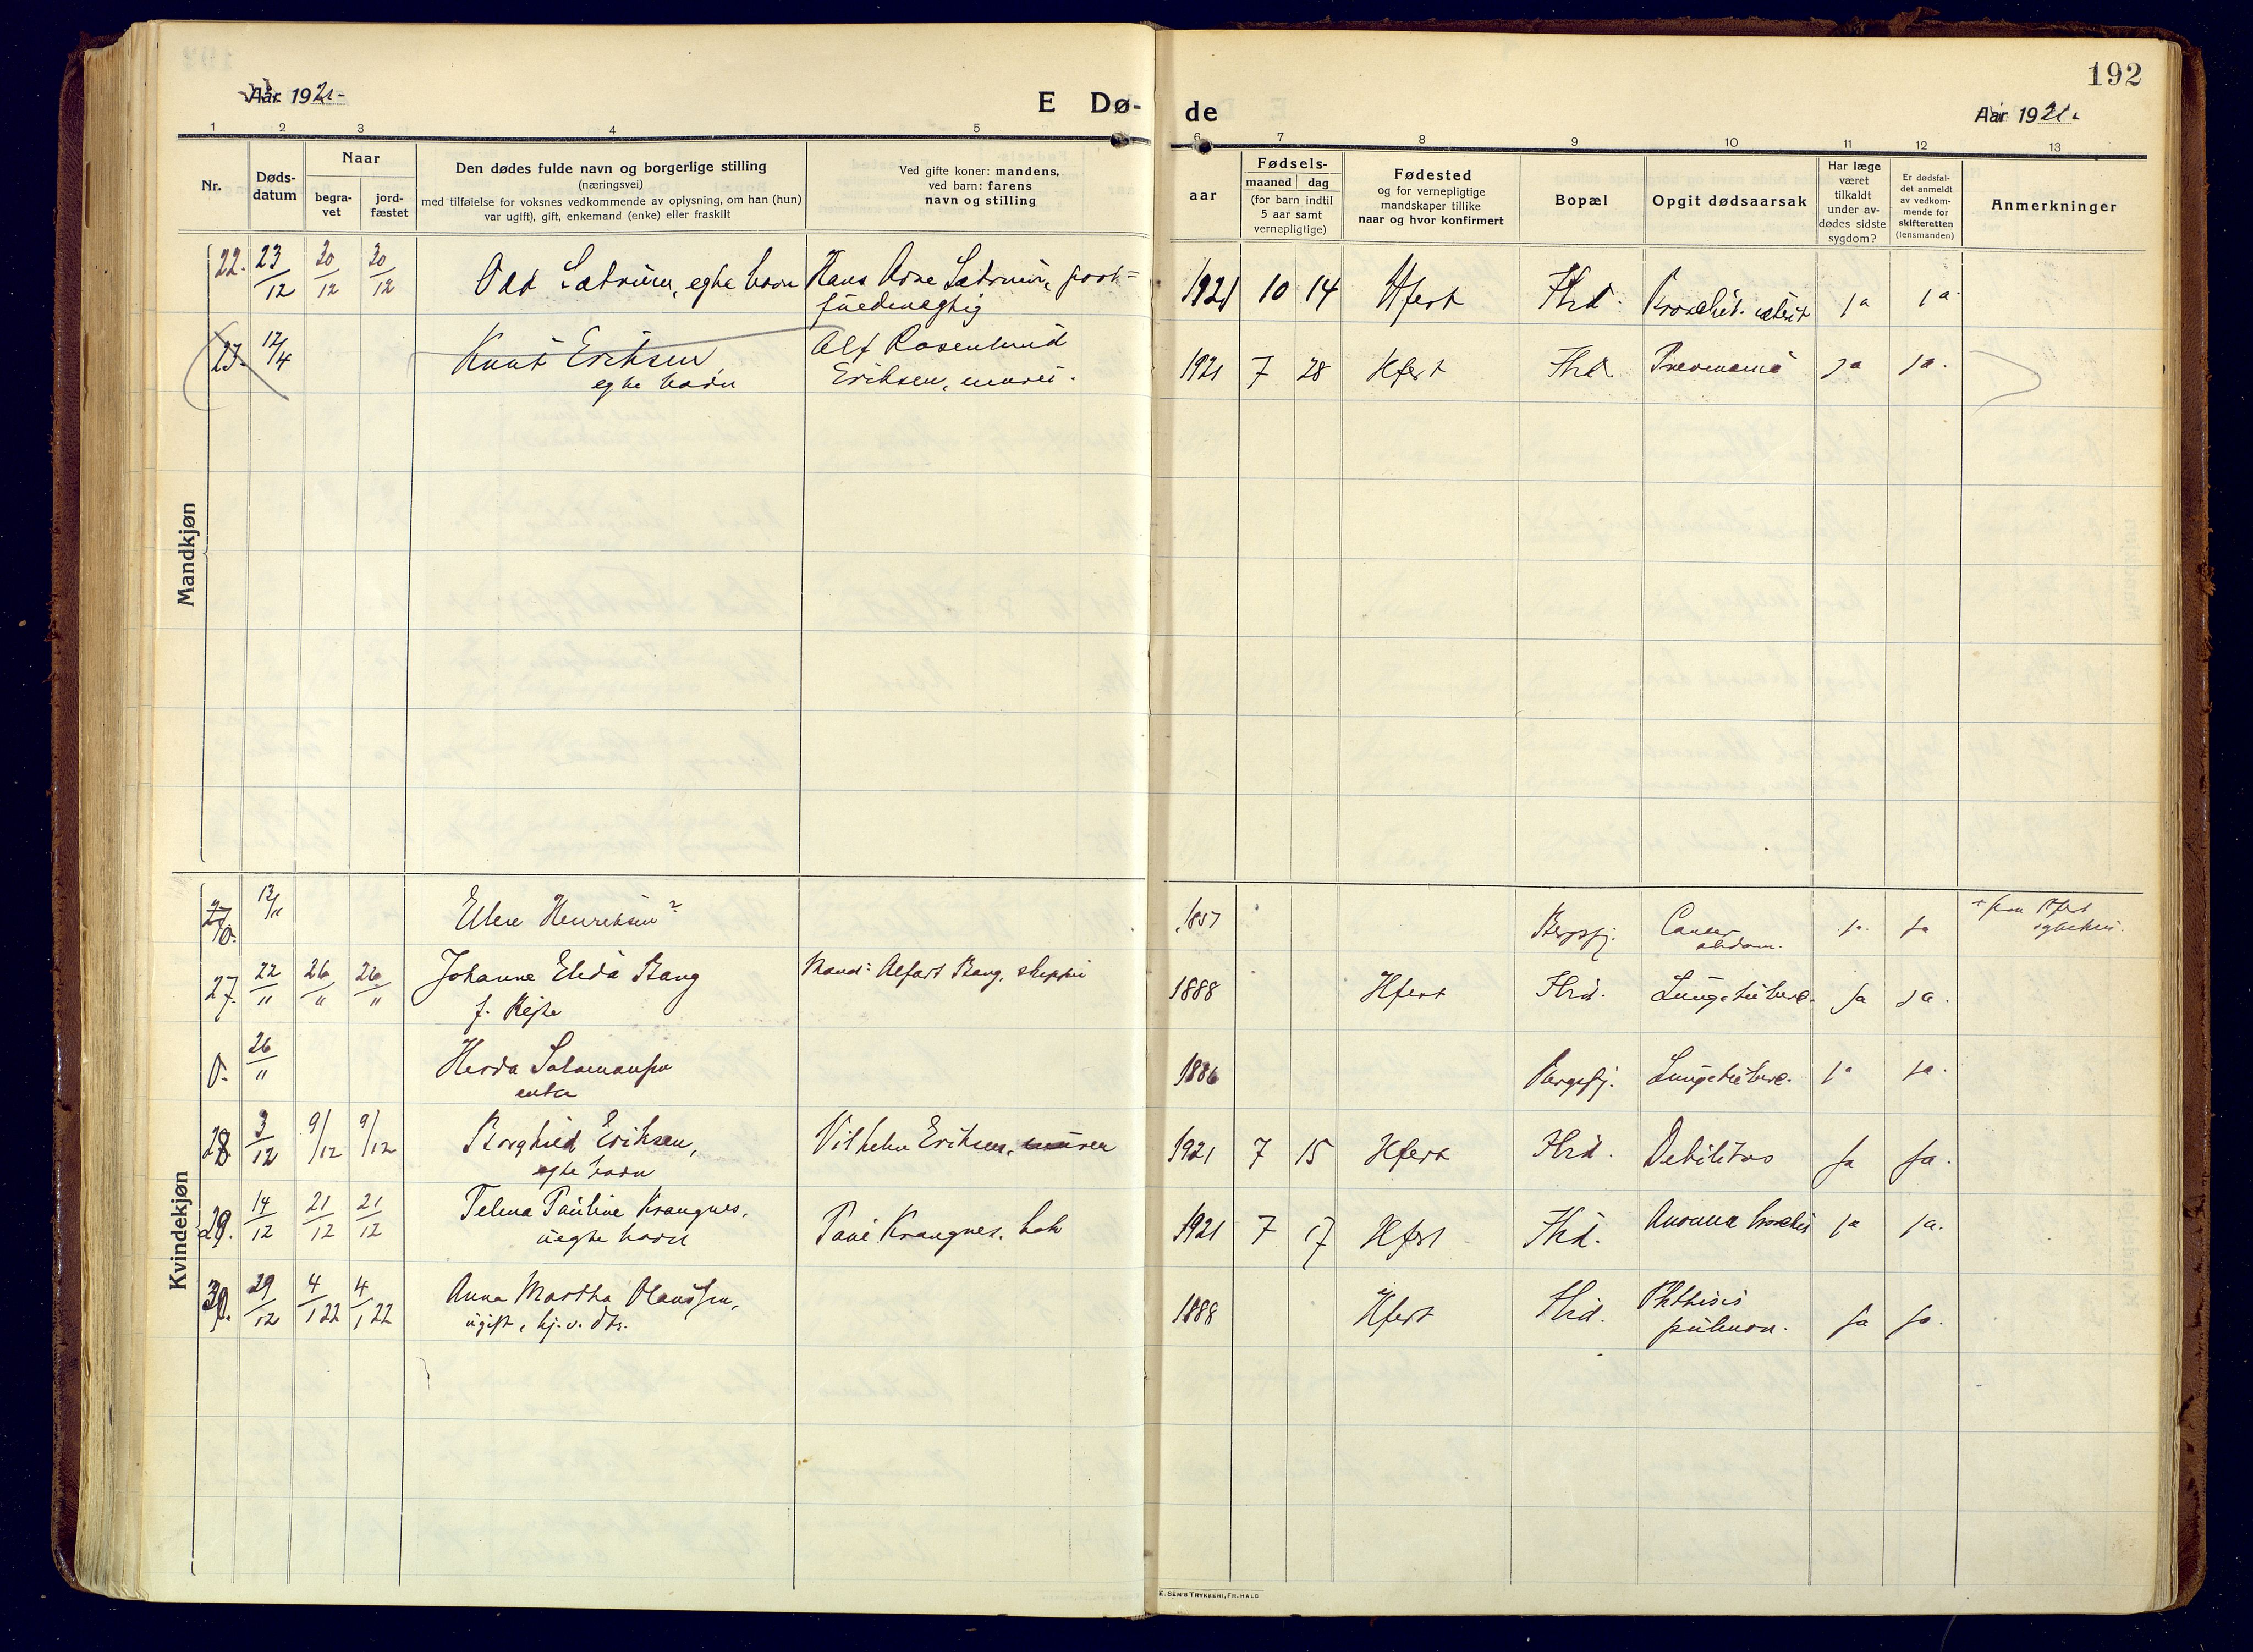 192
Aar 1921-
E Dø-
de
Aar 1921.
1 2 3 4 5 6 7 8 9 10 11 12 13
Nr.
Døds-
datum
Naar
begra-
vet
jord-
fæstet
Den dødes fulde navn og borgerlige stilling
(næringsvei)
med tilføielse for voksnes vedkommende av oplysning, om han (hun)
var ugift), gift, enkemand (enke) eller fraskilt
Ved gifte koner: mandens,
ved barn: farens
navn og stilling
aar
Fødsels-
maaned dag
(for barn indtil
5 aar samt
vernepligtige)
Fødested
og for vernepligtige
mandskaper tillike
naar og hvor konfirmert
Bopæl
Opgit dødsaarsak
Har læge
været
tilkaldt
under av-
dødes sidste
sygdom?
Er dødsfal-
det anmeldt
av vedkom-
mende for
skifteretten
(lensmanden)
Anmerkninger
Mandkjøn
22. 23/12 30/12 30/12 Odd Sætrum, egte barn Hans Arne Sætrum, post=
fuldmægtig
1921 10 14 Hfest Hrd. ja ja.
23. 12/4 Knut Eriksen,
egte barn
Alf Rosenlund
Eriksen, murer.
1921 7 28 Hfest Hrd. Pneumonia ja ja.
Kvindekjøn
0. 12/11 Ellen Henriksen
1857 Bergsfj. Cancer
abdom. ja. ja
27. 22/11 26/11 26/11 Johanne Elida Bang
f. Rejse
Mand: Alfart Bang, skipper
1888 Hfest Hrd. Lungetuberc. ja ja.
0. 26/11 Herda Salamonsen
enke
1886 Bergsfj. Lungetuberc. ja ja.
28 3/12 9/12 9/12 Borghild Eriksen,
egte barn
Vilhelm Eriksen, murer
1921 7 15 Hfest Hrd. Debilitas ja ja.
29. 14/12 21/12 21/12 Telma Pauline Krangnes,
uegte barn
Paul Krangnes, bak
1921 7 17 Hfest Hrd. ja ja.
30. 29/12 4/1 22 4/1 22 Anna Martha Olaussen,
ugift, hj. v. dtr.
1888 Hfest Hrd. Phthisis
pulmon. ja ja.
E. SEM'S TRYKKERI, FR.HALD